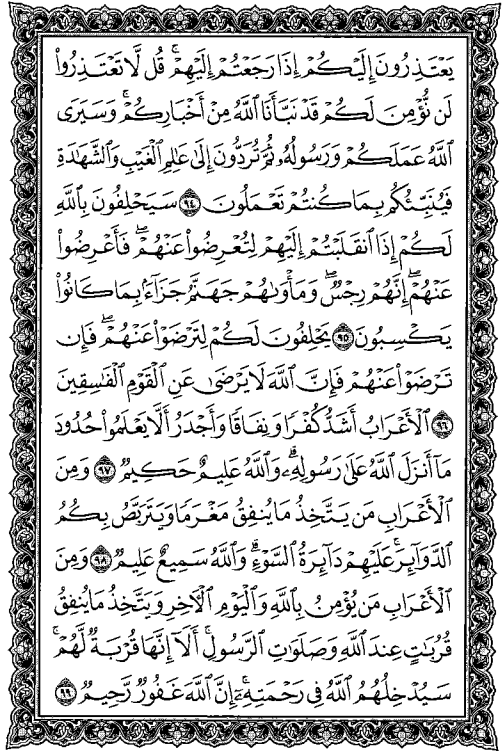 يَعْتَذِرُونَ إِلَيْكُمْ إِذَا رَجَعْتُمْ إِلَيْهِمْ ۚ قُل لَّا تَعْتَذِرُوا۟
لَن نُّؤْمِنَ لَكُمْ قَدْ نَبَّأَنَا ٱللَّهُ مِنْ أَخْبَارِكُمْ ۚ وَسَيَرَى
ٱللَّهُ عَمَلَكُمْ وَرَسُولُهُۥ ثُمَّ تُرَدُّونَ إِلَىٰ عَٰلِمِ ٱلْغَيْبِ وَٱلشَّهَٰدَةِ
فَيُنَبِّئُكُم بِمَا كُنتُمْ تَعْمَلُونَ ٩٤ سَيَحْلِفُونَ بِٱللَّهِ
لَكُمْ إِذَا ٱنقَلَبْتُمْ إِلَيْهِمْ لِتُعْرِضُوا۟ عَنْهُمْ ۖ فَأَعْرِضُوا۟
عَنْهُمْ ۖ إِنَّهُمْ رِجْسٌ ۖ وَمَأْوَىٰهُمْ جَهَنَّمُ جَزَآءًۢ بِمَا كَانُوا۟
يَكْسِبُونَ ٩٥ يَحْلِفُونَ لَكُمْ لِتَرْضَوْا۟ عَنْهُمْ ۖ فَإِن
تَرْضَوْا۟ عَنْهُمْ فَإِنَّ ٱللَّهَ لَا يَرْضَىٰ عَنِ ٱلْقَوْمِ ٱلْفَٰسِقِينَ
٩٦ ٱلْأَعْرَابُ أَشَدُّ كُفْرًا وَنِفَاقًا وَأَجْدَرُ أَلَّا يَعْلَمُوا۟ حُدُودَ
مَآ أَنزَلَ ٱللَّهُ عَلَىٰ رَسُولِهِۦ ۗ وَٱللَّهُ عَلِيمٌ حَكِيمٌ ٩٧ وَمِنَ
ٱلْأَعْرَابِ مَن يَتَّخِذُ مَا يُنفِقُ مَغْرَمًا وَيَتَرَبَّصُ بِكُمُ
ٱلدَّوَآئِرَ ۚ عَلَيْهِمْ دَآئِرَةُ ٱلسَّوْءِ ۗ وَٱللَّهُ سَمِيعٌ عَلِيمٌ ٩٨ وَمِنَ
ٱلْأَعْرَابِ مَن يُؤْمِنُ بِٱللَّهِ وَٱلْيَوْمِ ٱلْءَاخِرِ وَيَتَّخِذُ مَا يُنفِقُ
قُرُبَٰتٍ عِندَ ٱللَّهِ وَصَلَوَٰتِ ٱلرَّسُولِ ۚ أَلَآ إِنَّهَا قُرْبَةٌ لَّهُمْ ۚ
سَيُدْخِلُهُمُ ٱللَّهُ فِى رَحْمَتِهِۦٓ ۗ إِنَّ ٱللَّهَ غَفُورٌ رَّحِيمٌ ٩٩